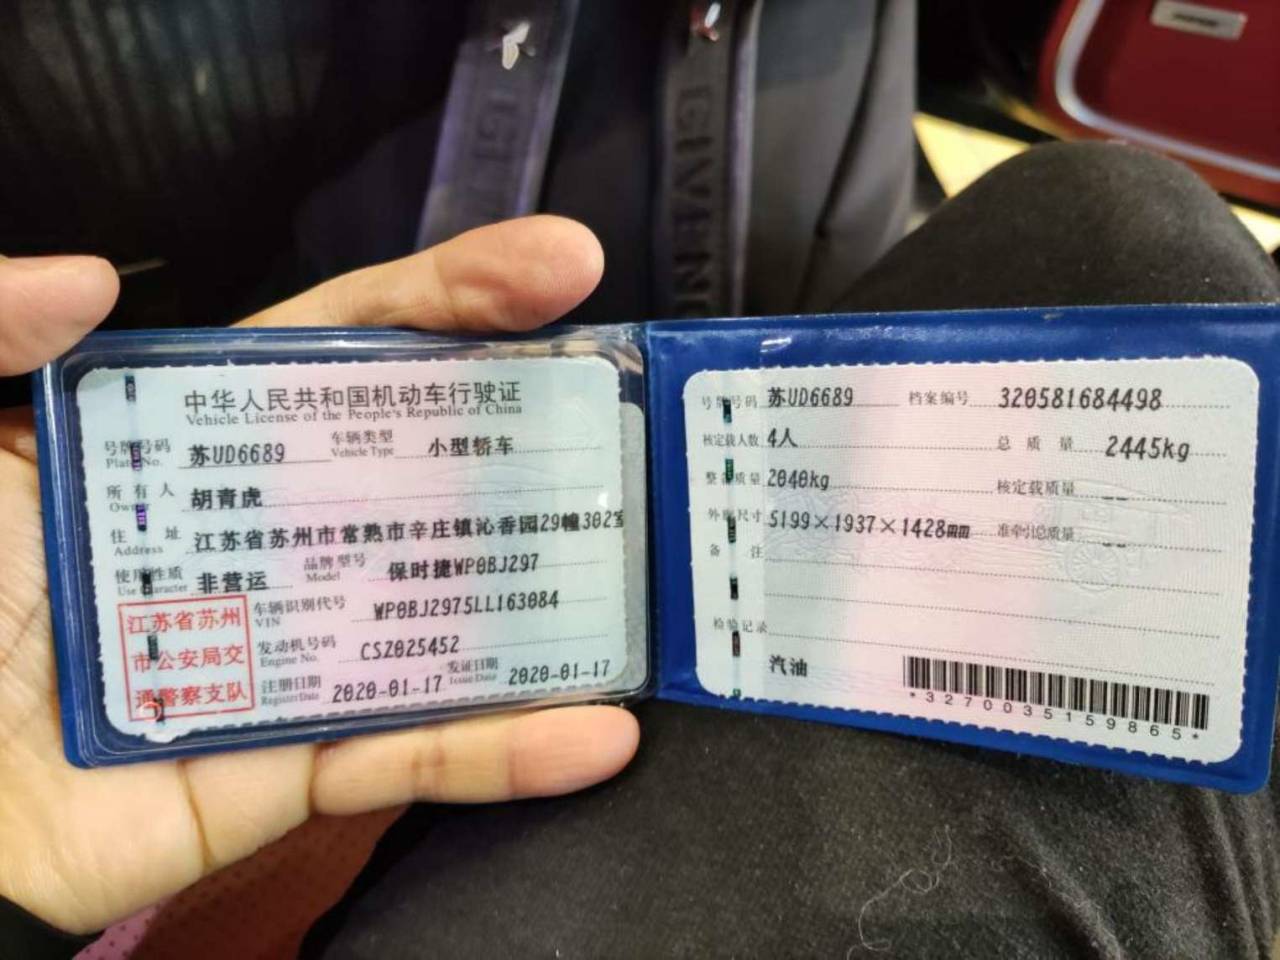 GIVENC
中华人民共和国机动车行驶证
Vehicle License of the People's Republic of China
号牌号码 苏UD6689 车辆类型 小型轿车
Plate No. Vehicle Type
所有人 胡青虎
Owner
住址 江苏省苏州市常熟市辛庄镇沁香园29幢302室
Address
使用性质 非营运 品牌型号 保时捷WP0BJ297
Use Character Model
江苏省苏州
市公安局交
通警察支队
车辆识别代号 WP0BJ2975LL163084
VIN
发动机号码 CSZ025452
Engine No.
注册日期 2020-01-17 发证日期 2020-01-17
Register Date Issue Date
号牌号码 苏UD6689 档案编号 320581684498
核定载人数 4人 总质量 2445kg
整备质量 2040kg 核定载质量 __
外廓尺寸 5199×1937×1428mm 准牵引总质量 __
备注
检验记录
汽油
*3270035159865*